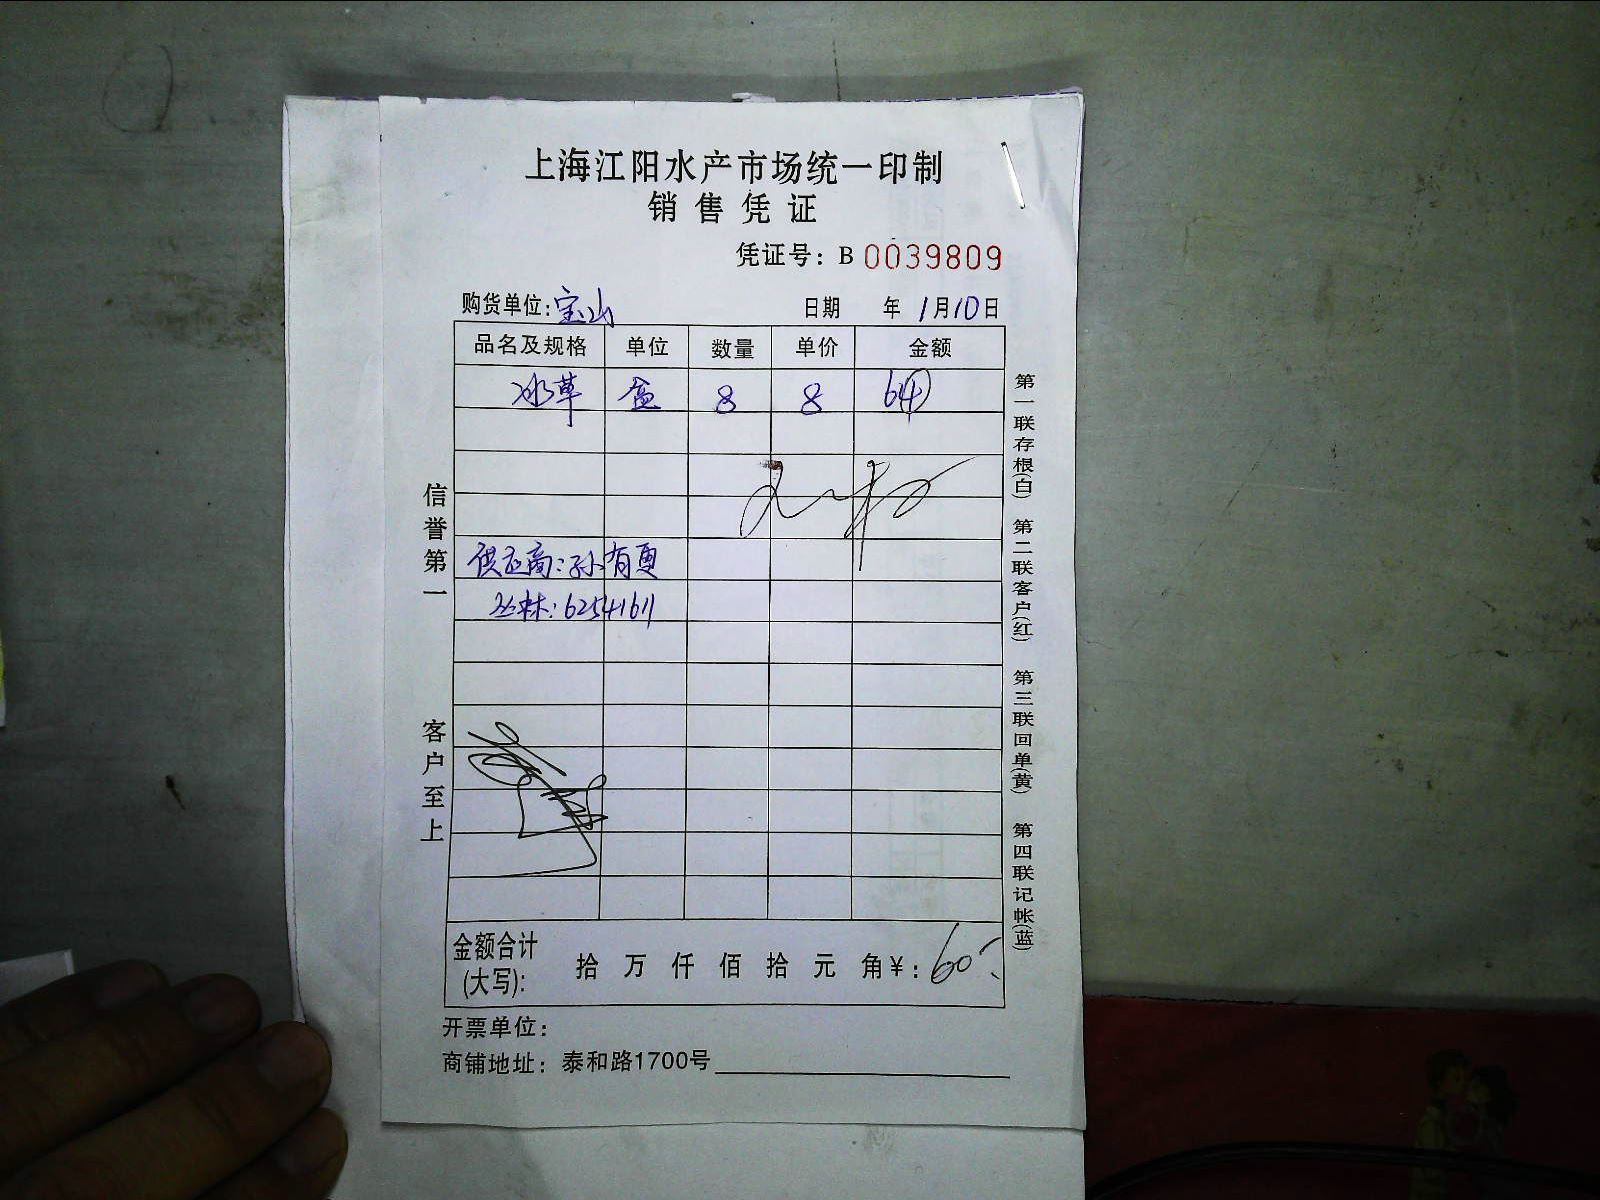 上海江阳水产市场统一印制
销售凭证
凭证号：B 0039809
购货单位：宝山 日期 年 1月10日
品名及规格 单位 数量 单价 金额
冰草 盒 8 8 64
供应商：孙有更
丛林：62541611
金额合计(大写)： 拾 万 仟 佰 拾 元 角 ￥：60
开票单位：
商铺地址：泰和路1700号
信誉第一 客户至上
第一联存根(白) 第二联客户(红) 第三联回单(黄) 第四联记帐(蓝)